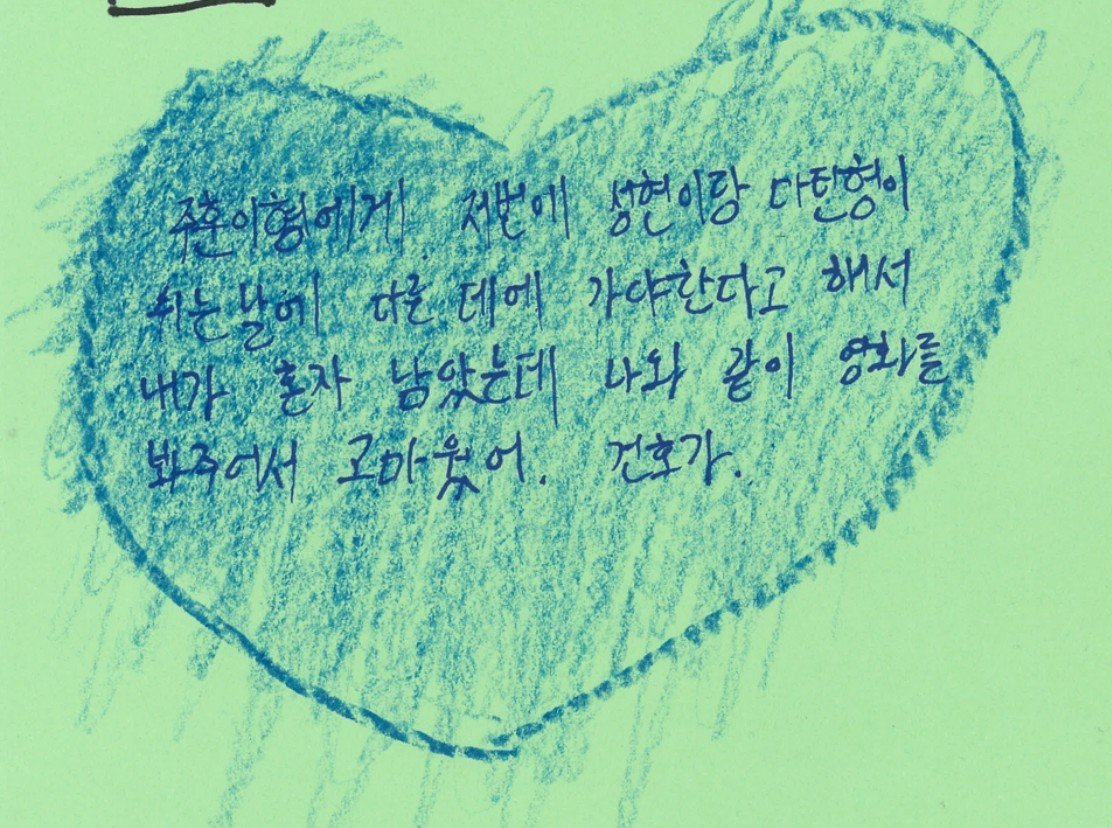 주훈이형에게. 저번에 성현이랑 다탄형이
쉬는날에 다른 데에 가야한다고 해서
내가 혼자 남았는데 나와 같이 영화를
봐주어서 고마웠어. 건호가.